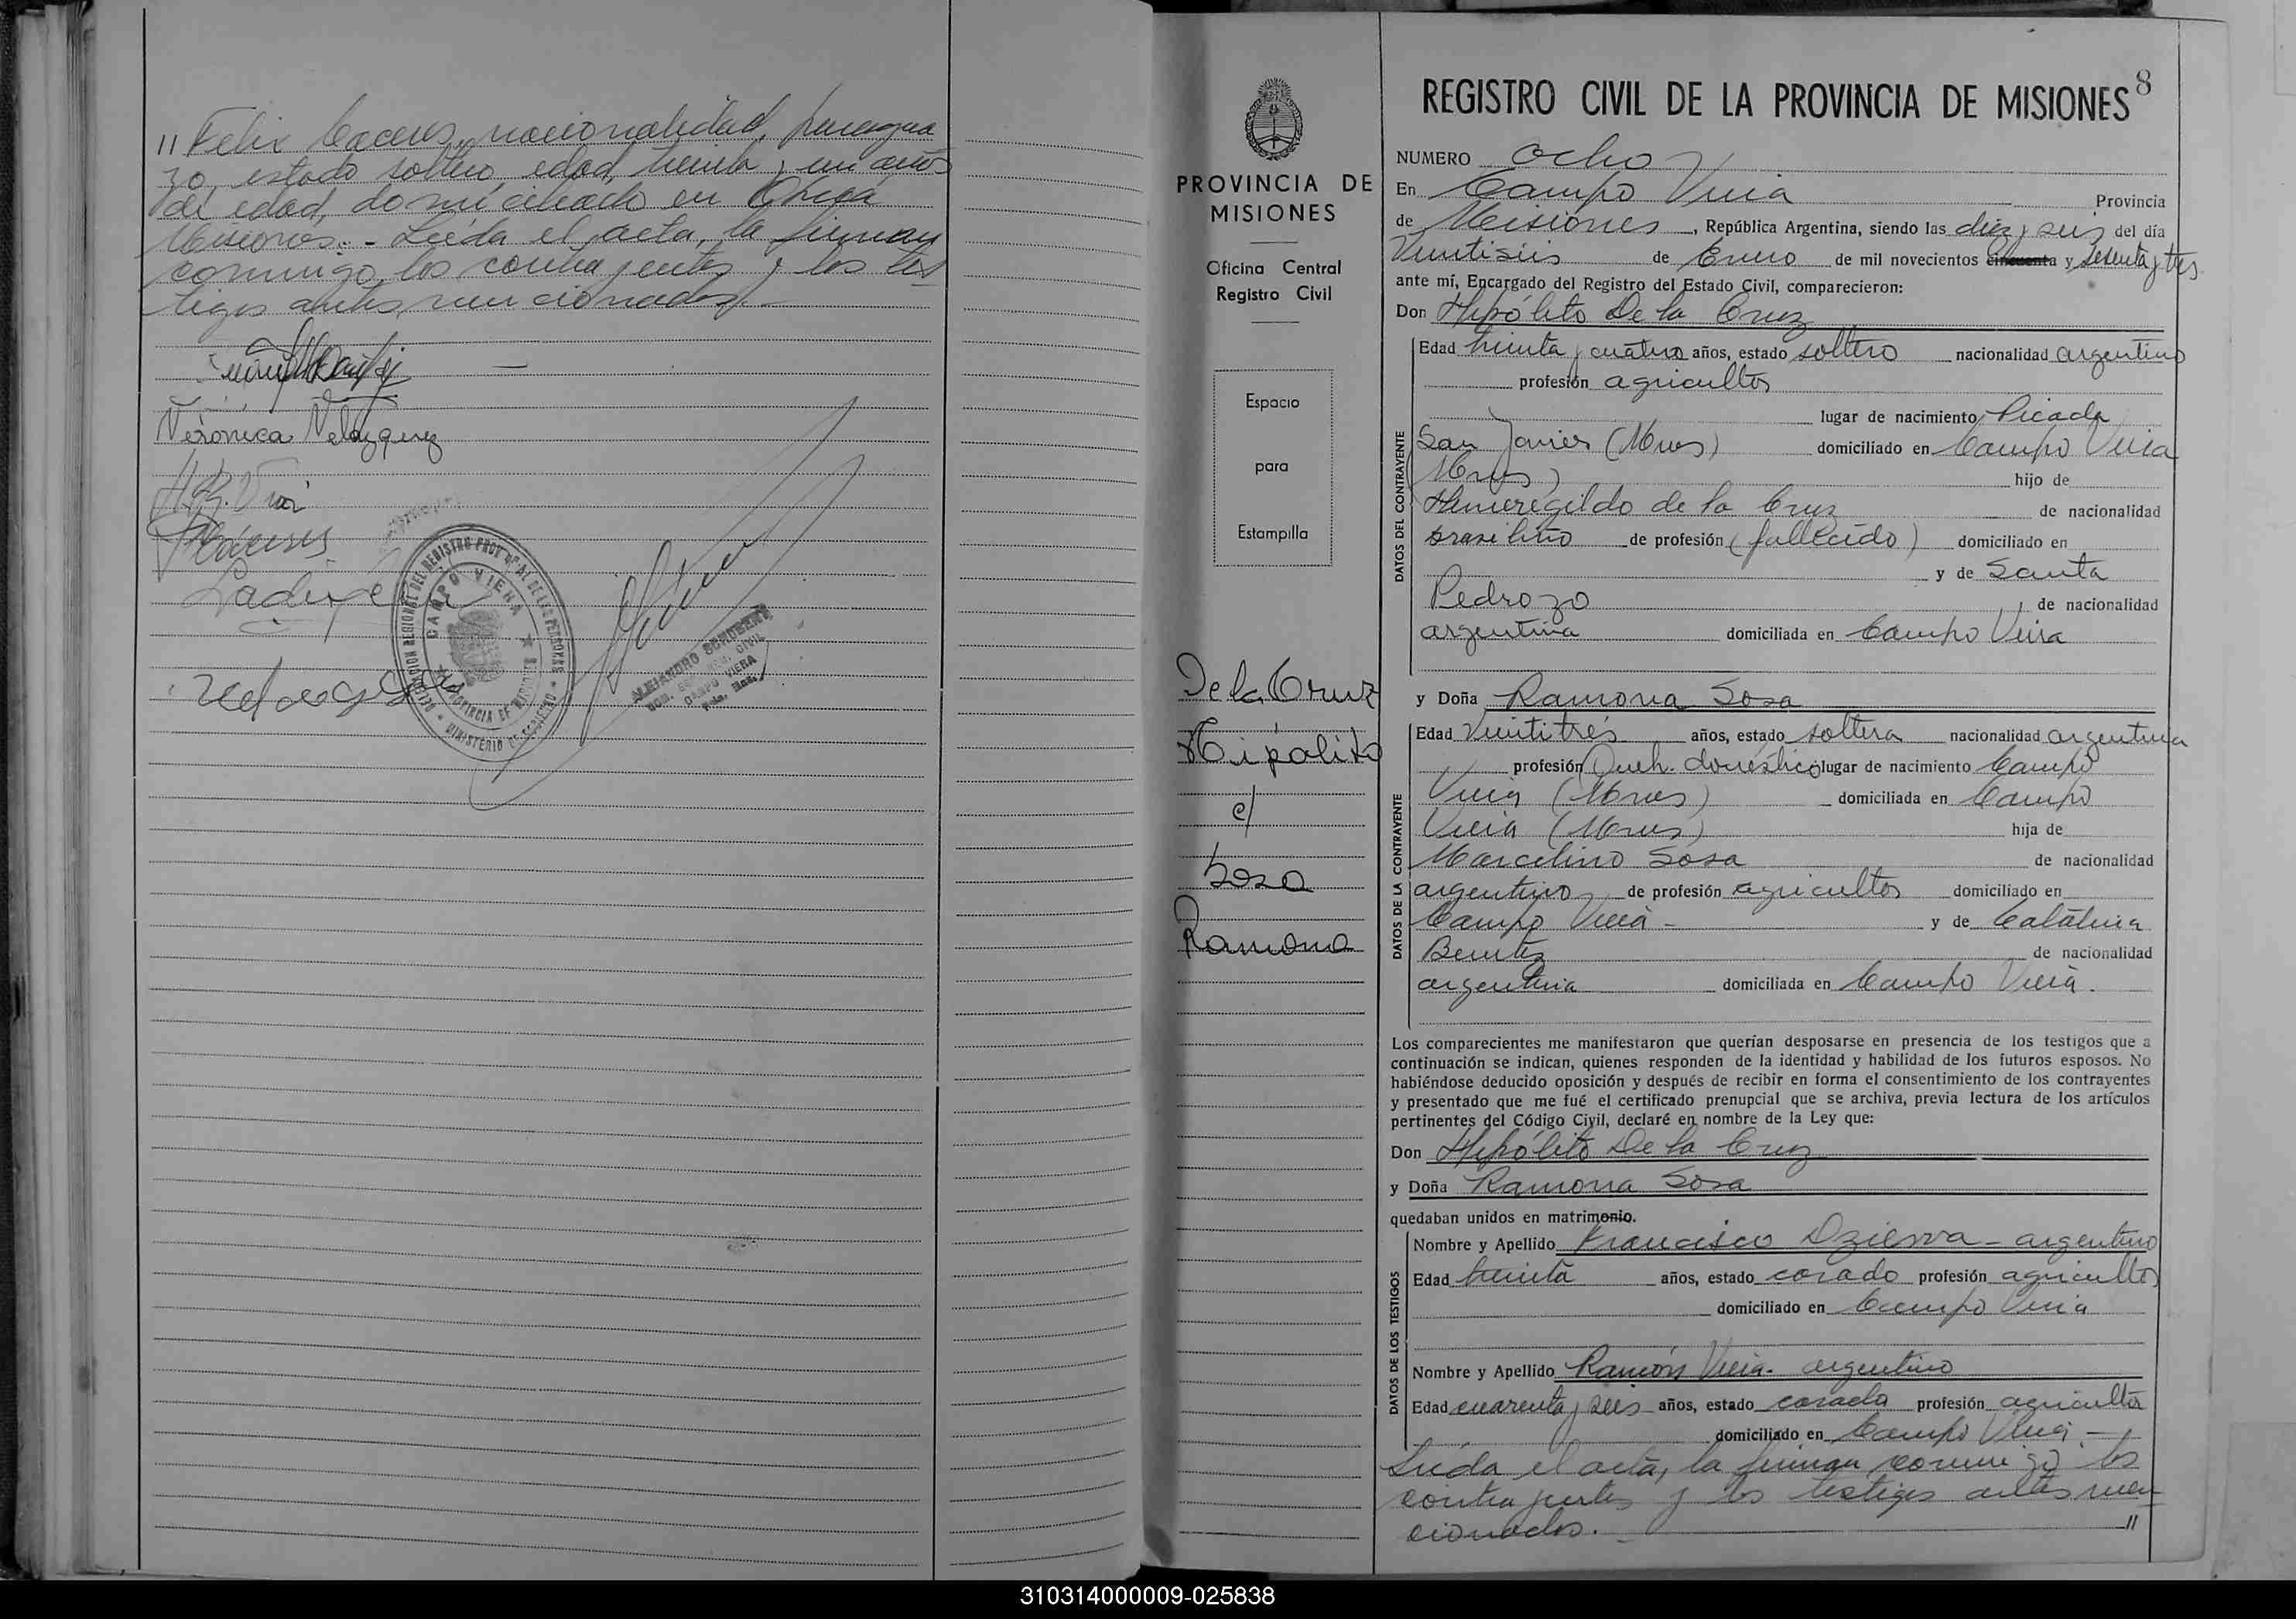 " Felix Caceres, nacionalidad, paragua
yo, estado soltero, edad, treinta y un años
de edad, domiciliado en Oberá
Misiones.- Leída el acta, la firman
conmigo los contrayentes y los tes
tigos antes mencionados.-
Verónica Velazquez
DELEGACION REGIONAL DEL REGISTRO PROV. DE LAS PERSONAS
CAMPO VIERA
PROVINCIA DE MISIONES
MINISTERIO DE GOBIERNO
ALEJANDRO
CAMPO VIERA
PROVINCIA DE
MISIONES
Oficina Central
Registro Civil
Espacio
para
Estampilla
De la Cruz
Hipólito
c/
Sosa
Ramona
8
REGISTRO CIVIL DE LA PROVINCIA DE MISIONES
NUMERO Ocho
En Campo Viera Provincia
de Misiones, República Argentina, siendo las diez y seis del día
Veintiseis de Enero de mil novecientos cincuenta y sesenta y tres
ante mí, Encargado del Registro del Estado Civil, comparecieron:
Don Hipólito De la Cruz
Edad treinta y cuatro años, estado soltero nacionalidad argentino
profesión agricultor
lugar de nacimiento Picada
San Javier (Mnes) domiciliado en Campo Viera
(Mnes) hijo de
Hemeregildo de la Cruz de nacionalidad
brasileño de profesión (fallecido) domiciliado en
y de Santa
Pedrozo de nacionalidad
argentina domiciliada en Campo Viera
DATOS DEL CONTRAYENTE
y Doña Ramona Sosa
Edad Veintitrés años, estado soltera nacionalidad argentina
profesión Queh. domésticos lugar de nacimiento Campo
Viera (Mnes) domiciliada en Campo
Viera (Mnes) hija de
Marcelino Sosa de nacionalidad
argentino de profesión agricultor domiciliado en
Campo Viera - y de Catalina
Benitez de nacionalidad
argentina domiciliada en Campo Viera.
DATOS DE LA CONTRAYENTE
Los comparecientes me manifestaron que querían desposarse en presencia de los testigos que a
continuación se indican, quienes responden de la identidad y habilidad de los futuros esposos. No
habiéndose deducido oposición y después de recibir en forma el consentimiento de los contrayentes
y presentado que me fué el certificado prenupcial que se archiva, previa lectura de los artículos
pertinentes del Código Civil, declaré en nombre de la Ley que:
Don Hipólito De la Cruz
y Doña Ramona Sosa
quedaban unidos en matrimonio.
Nombre y Apellido Francisco - argentino
Edad treinta años, estado casado profesión agricultor
domiciliado en Campo Viera
Nombre y Apellido Ramón Viera - argentino
Edad cuarenta y seis años, estado casado profesión agricultor
domiciliado en Campo Viera -
DATOS DE LOS TESTIGOS
Leída el acta, la firman conmigo los
contrayentes y los testigos antes men
cionados. "
310314000009-025838